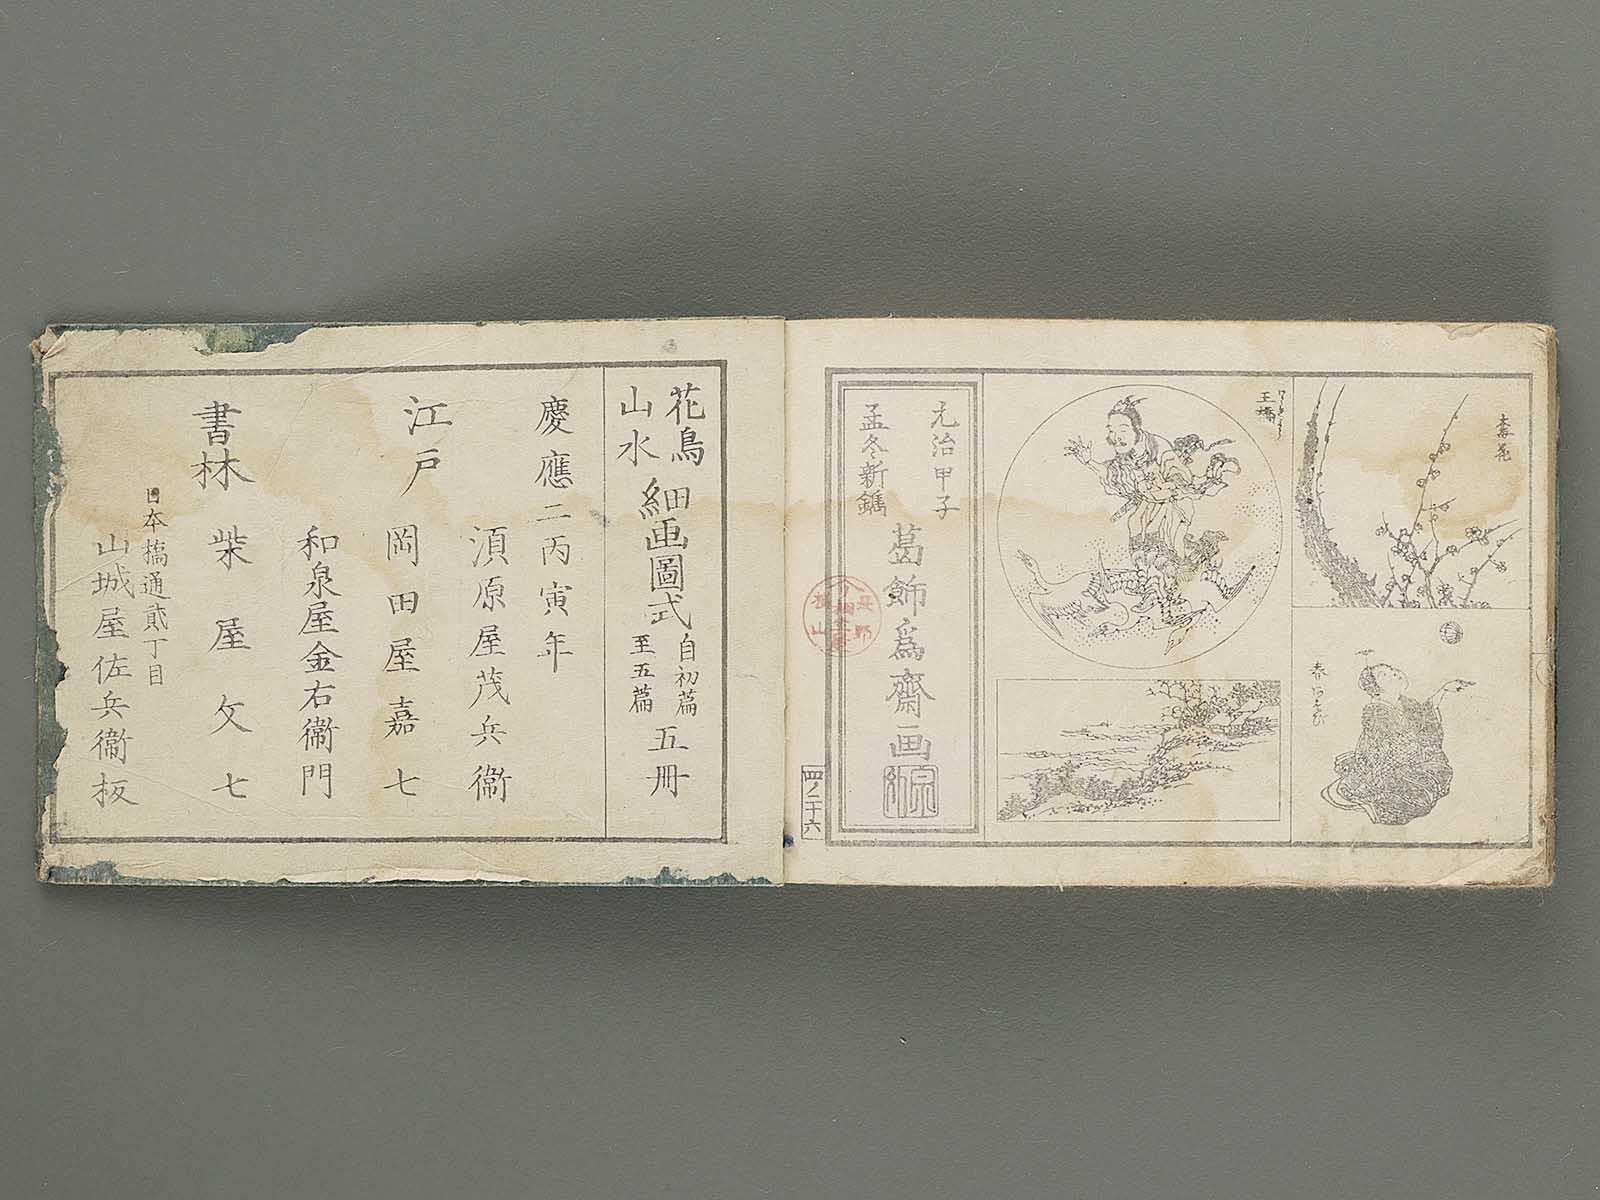 王橋
元治甲子
孟冬新鐫
葛飾為齋画
四ノ二十六
花鳥
山水
細画圖式
自初篇
至五篇
五冊
慶應二丙寅年
江戸
書林
須原屋茂兵衞
岡田屋嘉七
和泉屋金右衞門
柴屋文七
日本橋通貳丁目
山城屋佐兵衞板